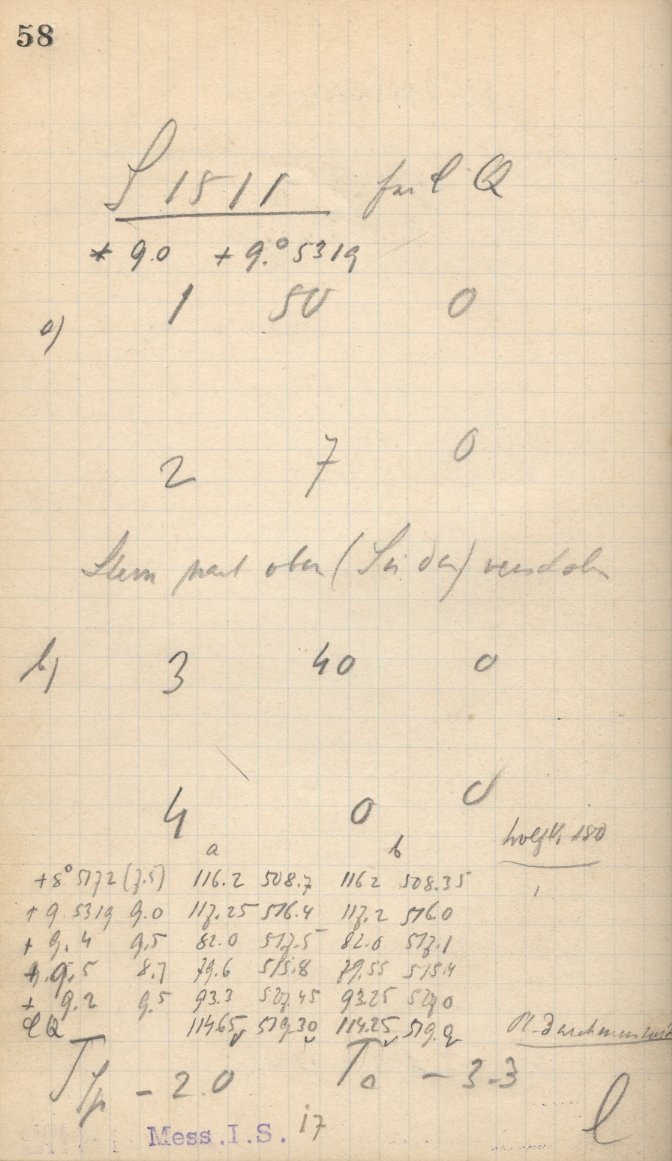 58
S 1511 für l Q
* 9.0 + 9.°5319
a) 1 50 0
2 7 0
Stern nach oben (Süden)
b) 3 40 0
4 0 0
a b
+8° 5172 (7.5) 116.2 508.7 116.2 508.35
+9. 5319 9.0 117.25 516.4 117.2 516.0
+ 9. 4 9.5 82.0 517.5 82.0 517.1
+ 9.5 8.7 79.6 515.8 79.55 515.4
+ 9.2 9.5 93.3 527.45 93.25 527.0
l Q 114.65 519.30 114.25 519.9
T Sp - 2.0 T a - 3.3
Mess.I.S. 17
l